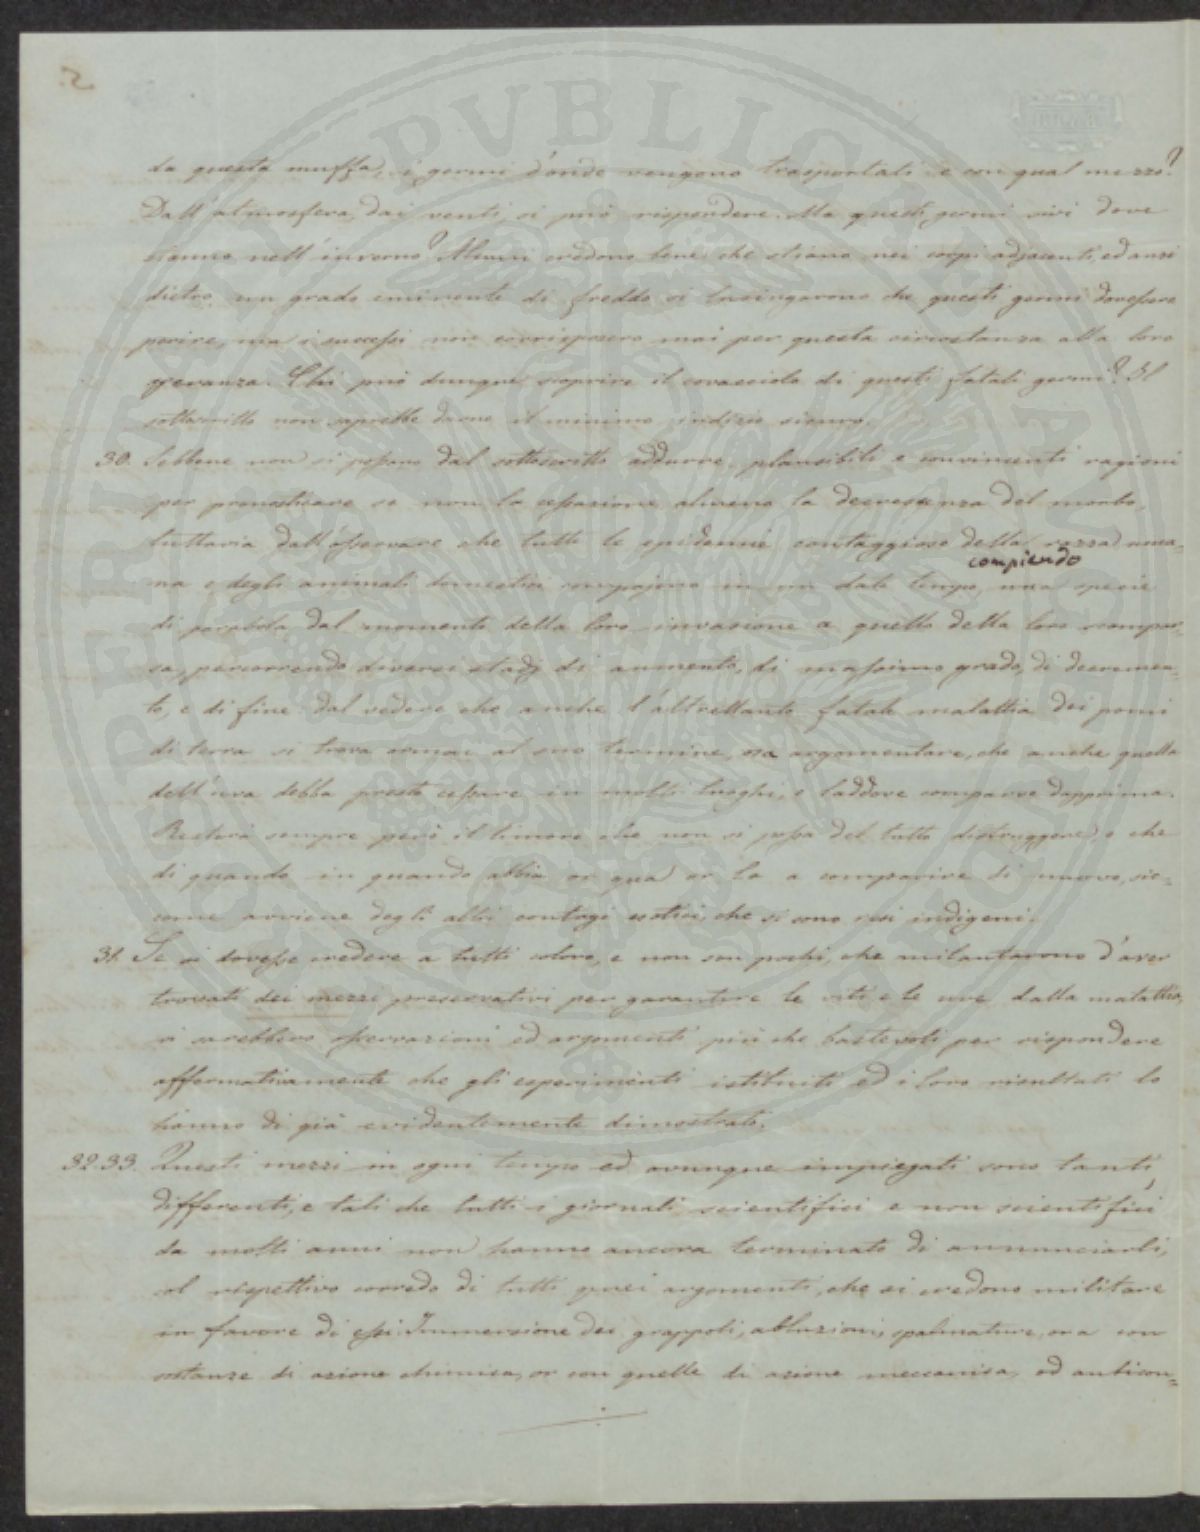 da questa muffa, i germi d'onde vengono trasportati e con qual mezzo?
Dall'atmosfera, dai venti, si può rispondere. Ma questi germi vivi dove
stanno nell'inverno? Alcuni credono bene che stiano nei corpi adjacenti, ed anzi
dietro un grado eminente di freddo si lusingarono che questi germi dovessero
perire, ma i successi non corrisposero mai per questa circostanza alla loro
speranza. Chi può dunque scoprire il covacciolo di questi fatali germi? Il
sottoscritto non saprebbe darne il minimo indizio sicuro.
30. Sebbene non si possano dal sottoscritto addurre plausibili e convincenti ragioni
per pronosticare se non la cessazione almeno la decrescenza del morbo,
tuttavia dall'osservare che tutte le epidemie contaggiose della razza uma=
compiendo
na e degli animali domestici compajono in un dato tempo, una specie
di parabola dal momento della loro invasione a quello della loro scompar=
sa, percorrendo diversi stadj di aumento, di massimo grado, di decremen=
to, e di fine: dal vedere che anche l'altrettanto fatale malattia dei pomi
di terra si trova ormai al suo termine, osa argomentare, che anche quella
dell'uva debba presto cessare in molti luoghi, e laddove comparve dapprima.
Resterà sempre però il timore che non si possa del tutto distruggere, e che
di quando in quando abbia or qua or la a comparire di nuovo, sic=
come avviene degli altri contagi esotici, che si sono resi indigeni.
31. Se si dovesse credere a tutti coloro, e non son pochi, che militantarono d'aver
trovati dei mezzi preservativi per garantire le viti e le uve dalla malattia,
vi sarebbero osservazioni ed argomenti più che bastevoli per rispondere
affermativamente che gli esperimenti istituiti ed i loro risultati lo
hanno di già evidentemente dimostrato.
32.33. Questi mezzi in ogni tempo ed ovunque impiegati sono tanti,
differenti, e tali che tutti i giornali scientifici e non scientifici
da molti anni non hanno ancora terminato di annunciarli,
col rispettivo corredo di tutti quei argomenti, che si credono militare
in favore di essi. Immersione dei grappoli, abluzioni, spalmature, ora con
sostanze di azione chimica, or con quelle di azione meccanica, ed anticon=